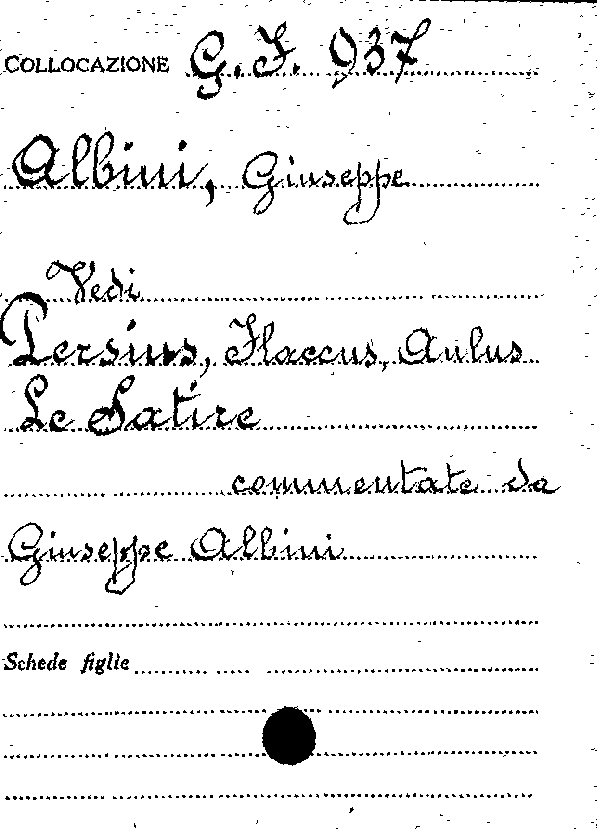 COLLOCAZIONE G. F. 937
Albini, Giuseppe
Vedi
Persius, Flaccus, Aulus
Le Satire
commentate da
Giuseppe Albini
Schede figlie